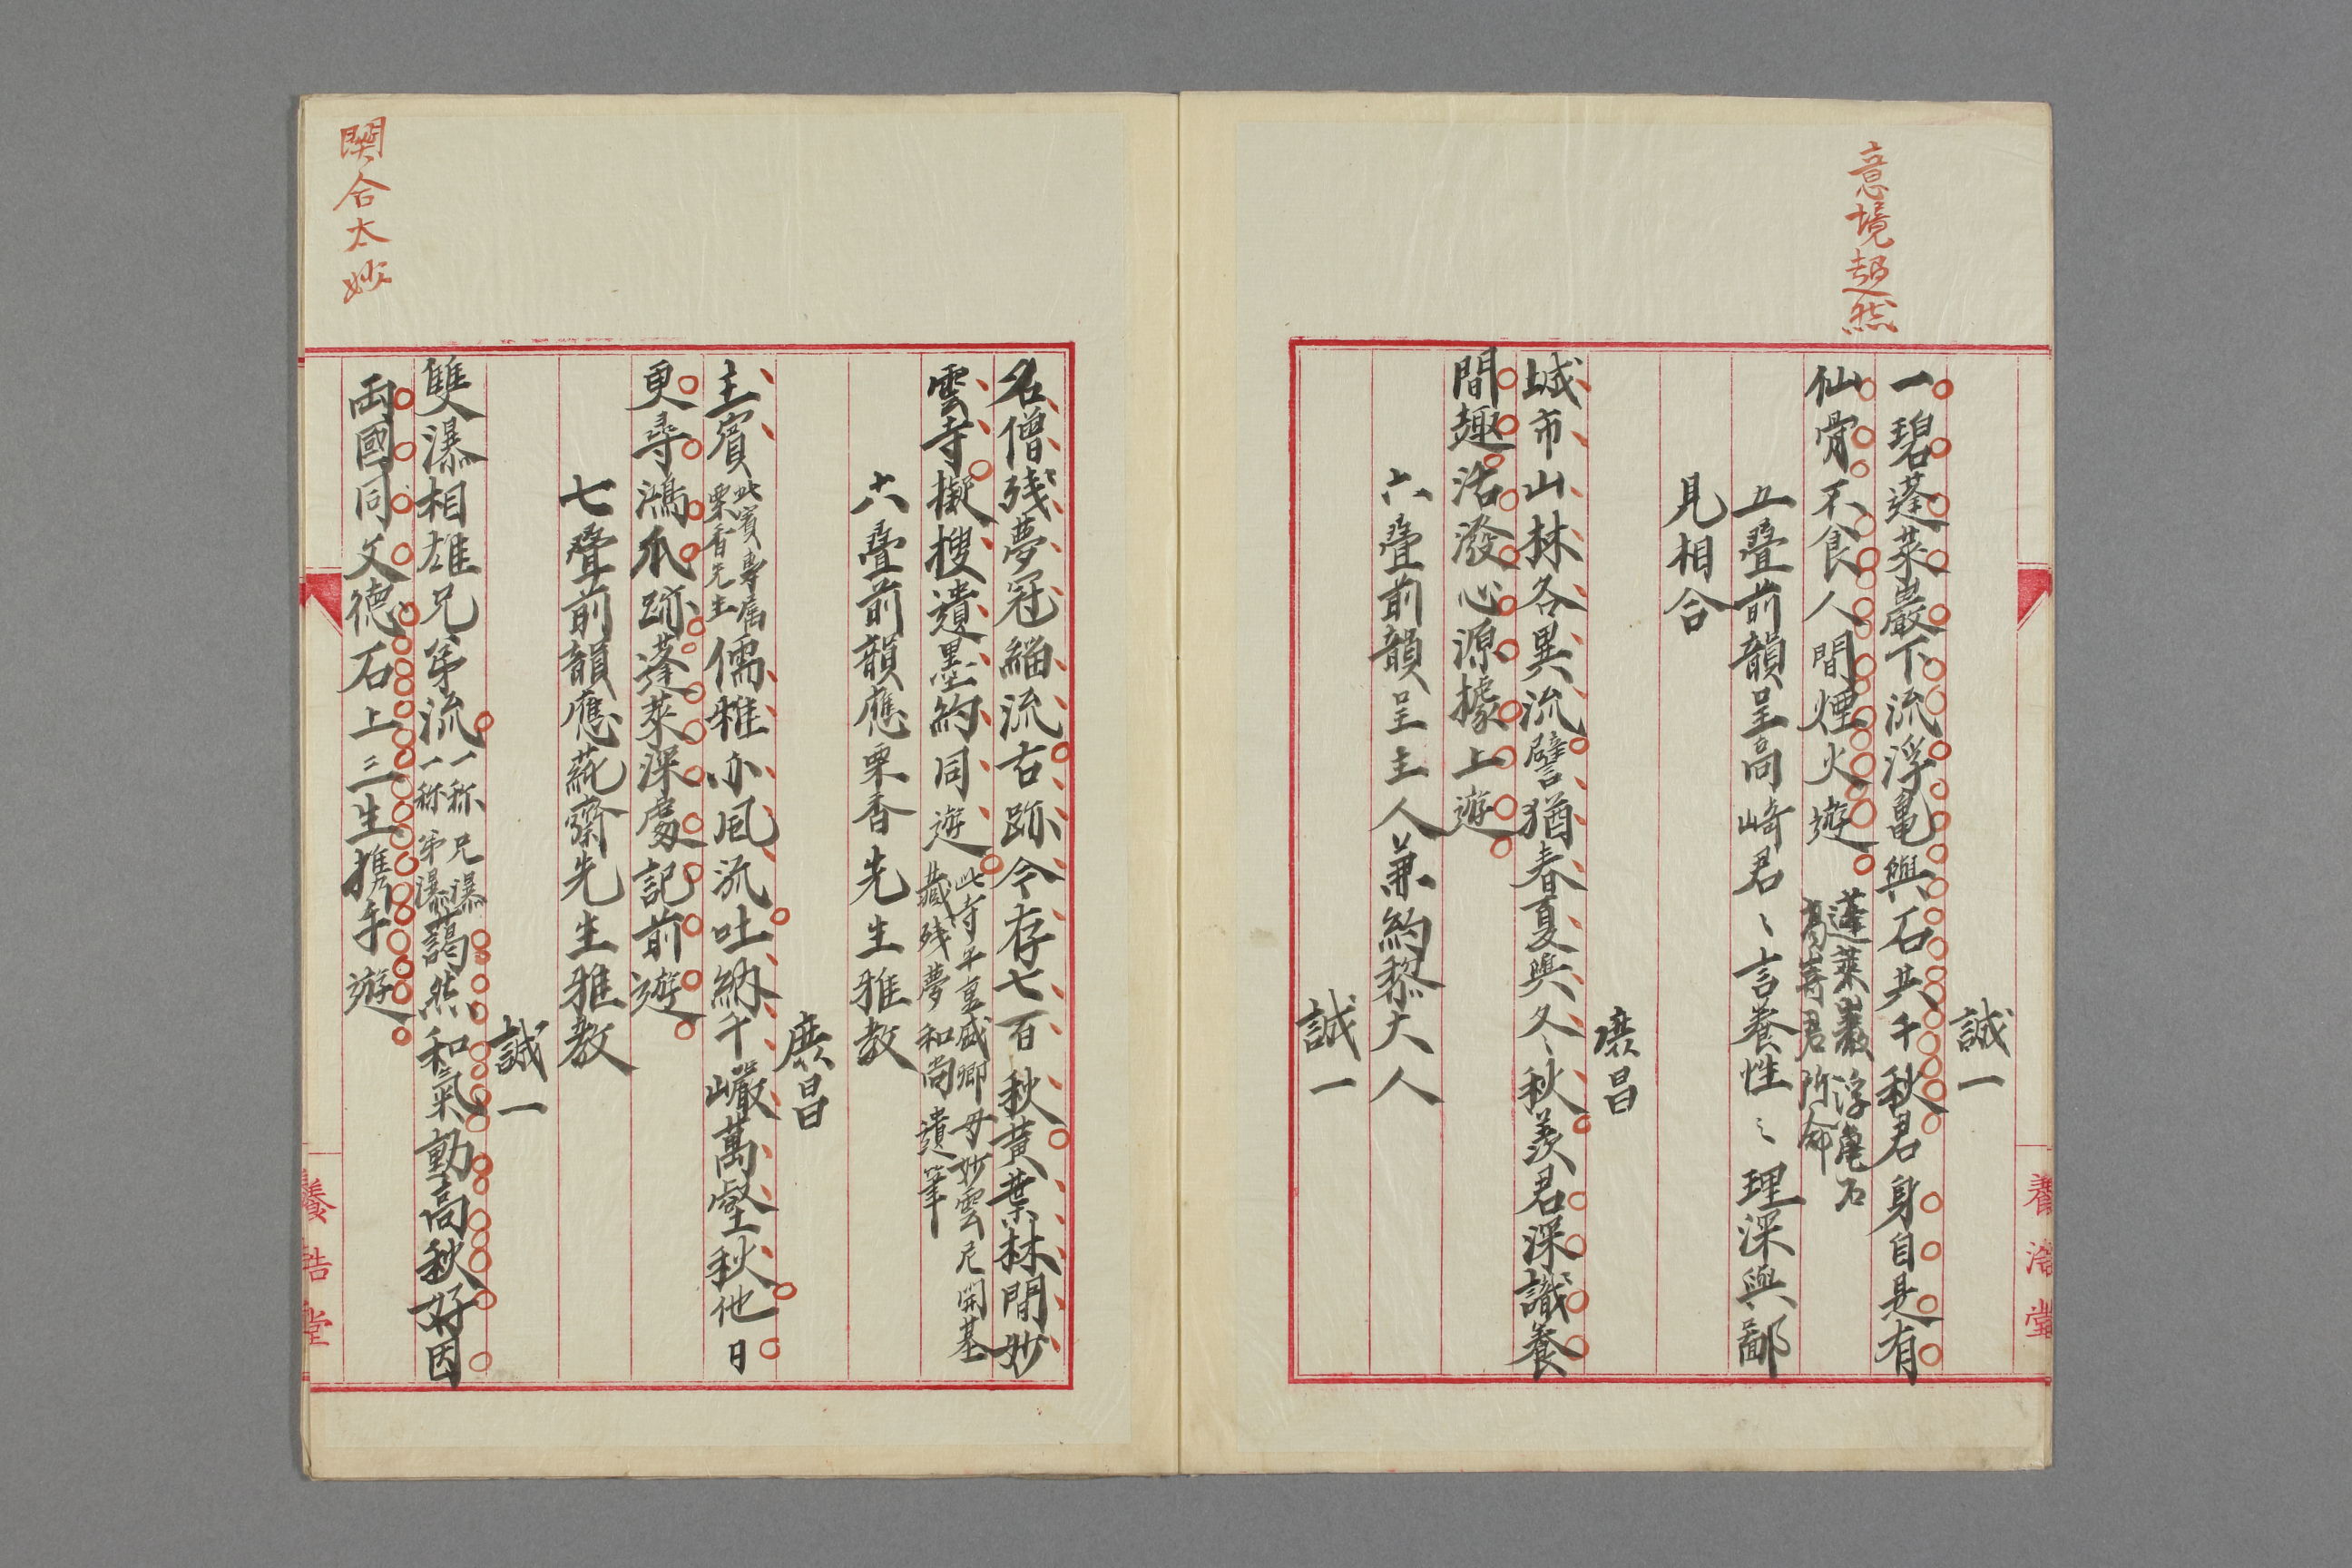 意境超然
誠一
一碧蓬萊巖下流浮亀與石共千秋君身自是有
仙骨不食人間煙火遊
蓬莱巌浮亀石
髙嵜君所命
五疊前韻呈高崎君〻言養性〻理深與鄙
見相合
廣昌
城市山林各異流譬猶春夏與冬秋羨君深識養
間趣活潑心源據上遊
六疊前韻呈主人兼約黎大人
誠一
養浩堂
名僧残夢冠緇流古跡今存七百秋黄葉林間妙
雲寺擬搜遺墨約同遊
此寺平重盛卿母妙雲尼開基
藏残夢和尚遺筆
六疊前韻應栗香先生雅教
廣昌
主賓
此賓専属
栗香先生
儒雅亦風流吐納千巖萬壑秋他日
更尋鴻爪跡蓬萊深處記前遊
七疊前韻應蒓齋先生雅教
誠一
雙瀑相雄兄弟流
一称兄瀑
一称弟瀑
藹然和氣動高秋好因
両國同文德石上三生携手遊
開合太妙
養浩堂